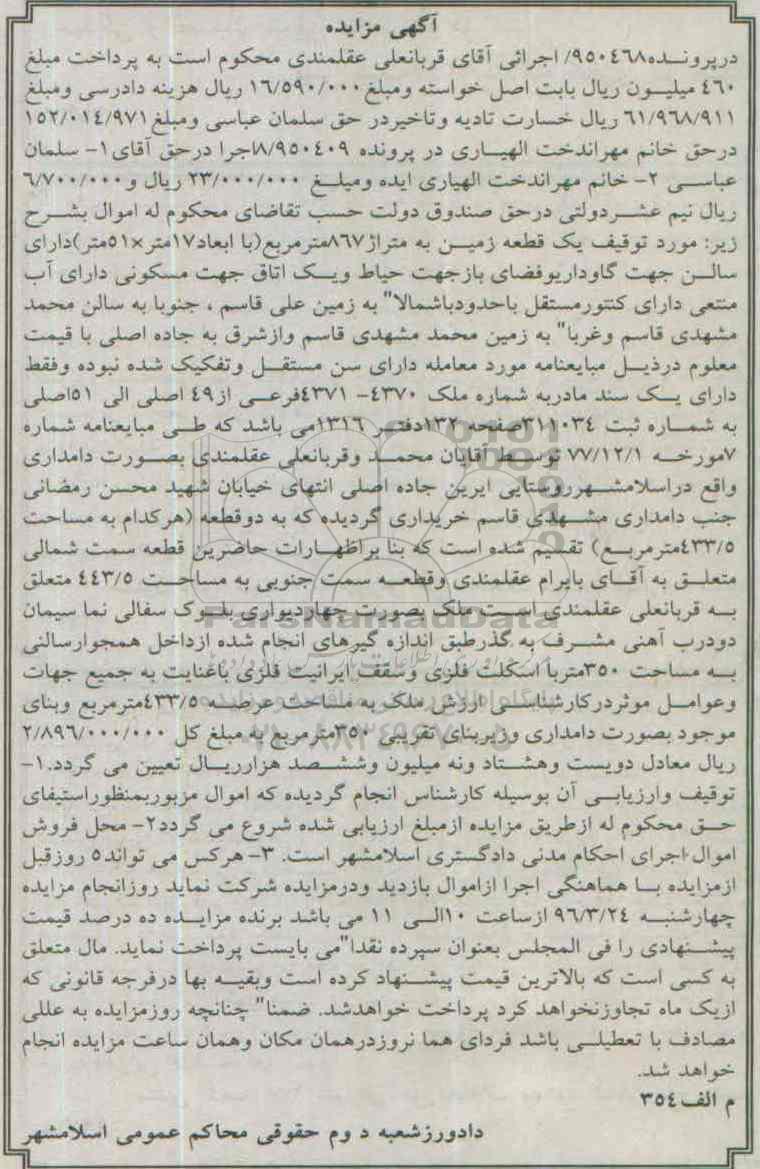 آگهی مزایده
درپرونـــده۹۵۰٤٦۸/ اجرائی آقای قربانعلی عقلمندی محکوم است به پرداخت مبلغ
٤٦۰ میلیــون ریال بابت اصل خواسته ومبلغ ۱٦/۵۹۰/۰۰۰ ریال هزینه دادرسی ومبلغ
٦۱/۹٦۸/۹۱۱ ریال خسارت تادیه وتاخیردر حق سلمان عباسی ومبلغ ۱۵۲/۰۱٤/۹۷۱
درحق خانم مهراندخت الهیــاری در پرونده ۸/۹۵۰٤۰۹اجرا درحق آقای ۱- سلمان
عباســی ۲- خانم مهراندخت الهیاری ایده ومبلــغ ۲۳/۰۰۰/۰۰۰ ریال و ٦/۷۰۰/۰۰۰
ریال نیم عشــردولتی درحق صندوق دولت حسب تقاضای محکوم له اموال بشــرح
زیر: مورد توقیف یک قطعه زمیــن به متراژ۸٦۷مترمربع(با ابعاد۱۷متر×۵۱متر)دارای
سالــن جهت گاوداریوفضای بازجهت حیاط ویــک اتاق جهت مسکونی دارای آب
منتعی دارای کنتورمستقل باحدودباشمالا" به زمین علی قاسم ، جنوبا به سالن محمد
مشهدی قاسم وغربا" به زمین محمد مشهدی قاسم وازشرق به جاده اصلی با قیمت
معلوم درذیــل مبایعنامه مورد معامله دارای سن مستقــل وتفکیک شده نبوده وفقط
دارای یــک سند مادربه شماره ملک ٤۳۷۰- ٤۳۷۱فرعــی از٤۹ اصلی الی ۵۱اصلی
به شمــاره ثبت ۳۱۱۰۳٤صفحه ۱۳۲دفتــر ۱۳۱٦می باشد که طــی مبایعنامه شماره
۷مورخــه ۷۷/۱۲/۱ توســط آقایان محمــد وقربانعلی عقلمندی بصــورت دامداری
واقع دراسلامشــهرروستایی ایرین جاده اصلی انتهای خیابان شهید محسن رمضانی
جنب دامداری مشــهدی قاسم خریداری گردیده که به دوقطعه (هرکدام به مساحت
٤۳۳/۵مترمربــع) تقسیم شده است که بنا براظهــارات حاضرین قطعه سمت شمالی
متعلــق به آقــای بایرام عقلمندی وقطعــه سمت جنوبی به مساحــت ٤٤۳/۵ متعلق
بــه قربانعلی عقلمندی اســت ملک بصورت چهاردیواری بلــوک سفالی نما سیمان
دودرب آهنی مشــرف به گذرطبق اندازه گیرهای انجام شده ازداخل همجوارسالنی
بــه مساحت ۳۵۰متربا اسکلت فلزی وسقف ایرانیت فلزی باغنایت به جمیع جهات
وعوامــل موثردرکارشناســی ارزش ملک به مساحت عرصــه ٤۳۳/۵مترمربع وبنای
موجود بصورت دامداری وزیربنای تقریبی ۳۵۰مترمربع به مبلغ کل ۲/۸۹٦/۰۰۰/۰۰۰
ریال معادل دویست وهشــتاد ونه میلیون وششــصد هزارریــال تعیین می گردد.۱-
توقیف وارزیابــی آن بوسیله کارشناس انجام گردیده که اموال مزبوربمنظوراستیفای
حــق محکوم له ازطریق مزایده ازمبلغ ارزیابی شده شروع می گردد۲- محل فروش
اموال اجرای احکام مدنی دادگستری اسلامشهر است. ۳- هرکس می تواند۵ روزقبل
ازمزایده بــا هماهنگی اجرا ازاموال بازدید ودرمزایده شرکت نماید روزانجام مزایده
چهارشنبــه ۹٦/۳/۲٤ ازساعت ۱۰الــی ۱۱ می باشد برنده مزایــده ده درصد قیمت
پیشــنهادی را فی المجلس بعنوان سپرده نقدا"می بایست پرداخت نماید. مال متعلق
به کسی است که بالاترین قیمت پیشــنهاد کرده است وبقیــه بها درفرجه قانونی که
ازیک ماه تجاوزنخواهد کرد پرداخت خواهدشد. ضمنا" چنانچه روزمزایده به عللی
مصادف با تعطیلــی باشد فردای هما نروزدرهمان مکان وهمان ساعت مزایده انجام
خواهد شد.
م الف ۳۵٤
دادورزشعبه د وم حقوقی محاکم عمومی اسلامشهر
ParsNamadData